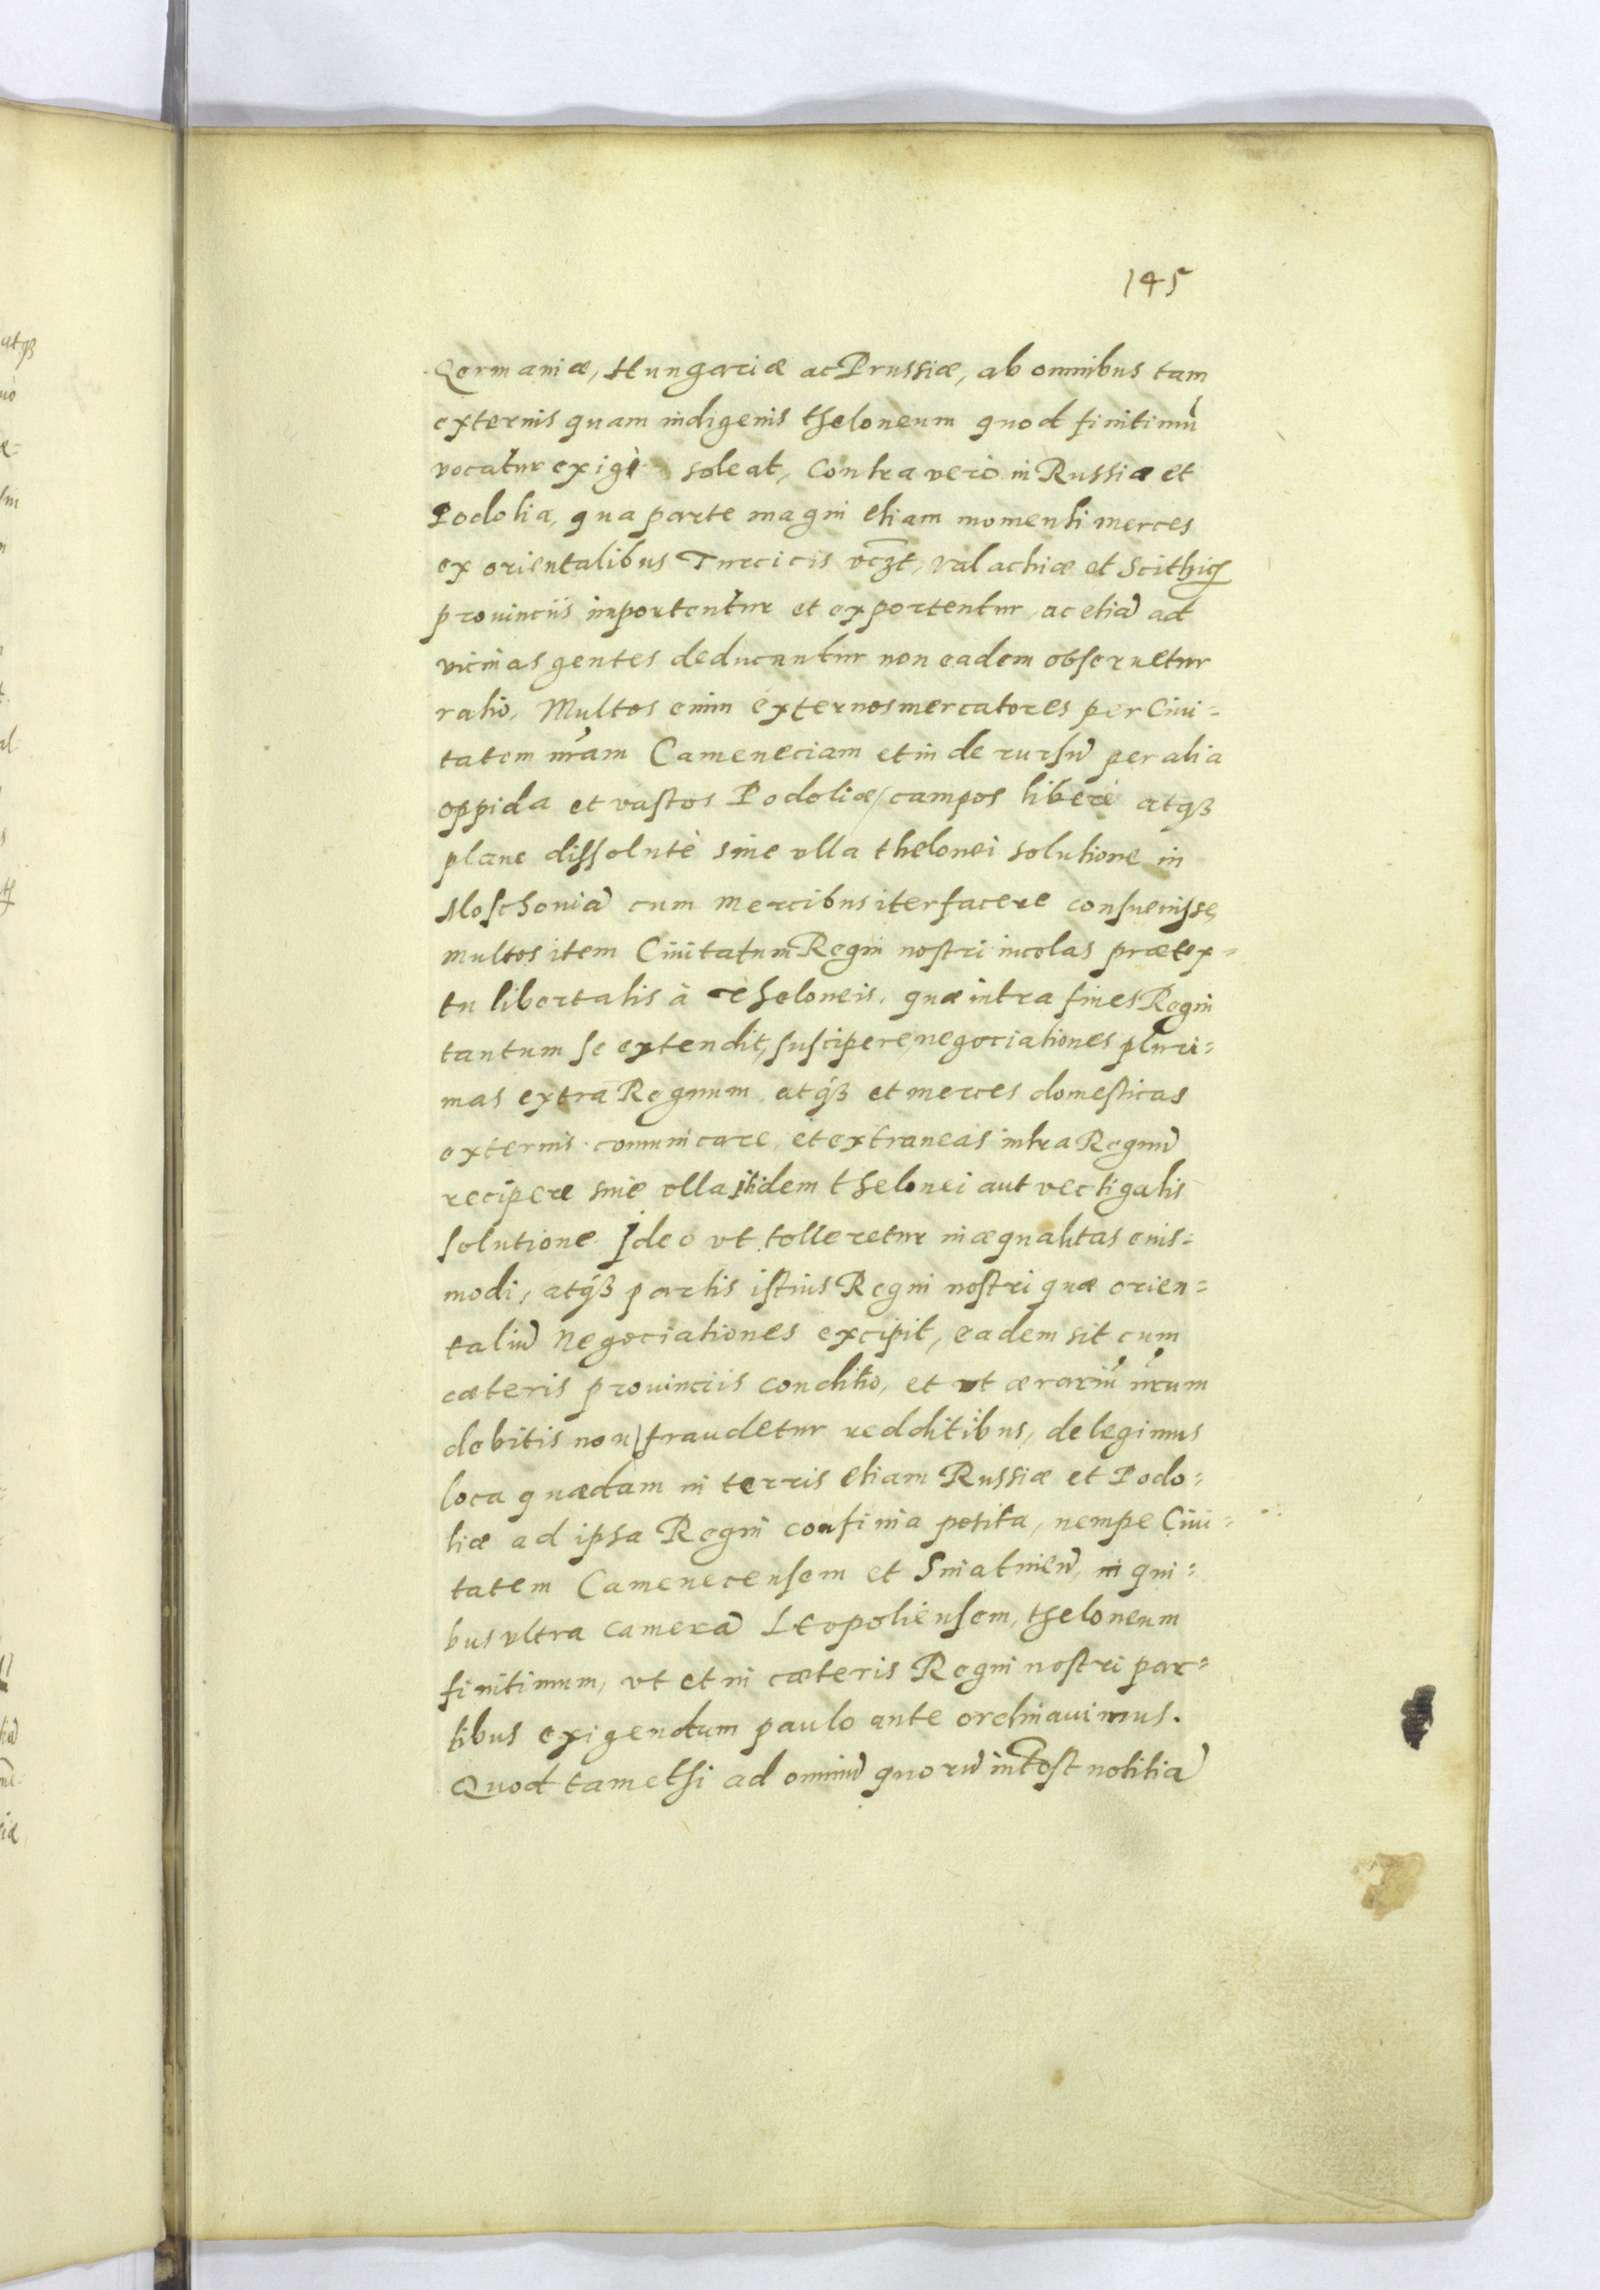 145
Germaniæ, Hungariæ ac Prussiæ, ab omnibus tam
externis quam indigenis theloneum quod finitimũ
vocatur exigi soleat, Contra vero in Russia et
Podolia, qua parte magni etiam momenti merces
ex orientalibus Turcicis vczt, valachiæ et Scithicis
prouinciis importentur et exportentur, ac etiã ad
vicinas gentes deducantur non eadem obseruetur
ratio, Multos enim externos mercatores per Ciui=
tatem nr̃am Cameneciam et inde rursũ per alia
oppida et vastos Podoliæ campos liberè atqз
plane dissolutè sine vlla thelonei solutione in
Moschouiã cum mercibus iter facere consueuisse,
multos item Ciuitatum Regni nostri incolas prætex=
tu libertatis à theloneis, quæ intra fines Regni
tantum se extendit, suscipere negociationes pluri=
mas extra Regnum, atqз et merces domesticas
externis comunicare, et extraneas intra Regnũ
recipere sine vlla itidem thelonei aut vectigalis
solutione Ideo vt tolleretur inæqualitas euis=
modi, atqз partis istius Regni nostri quæ orien=
taliũ negociationes excipit, eadem sit cum
cæteris prouinciis conditio, et vt ærariũ nr̃um
debitis non fraudetur redditibus, delegimus
loca quædam in terris etiam Russiæ et Podo=
liæ ad ipsa Regni confinia posita, nempe Ciui=
tatem Camenecensem et Sniatinen̄, in qui=
bus vltra camerã Leopoliensem, theloneum
finitimum, vt et in cæteris Regni nostri par=
tibus exigendum paulo ante ordinauimus.
Quod tametsi ad omniũ quorũ intest notitiã